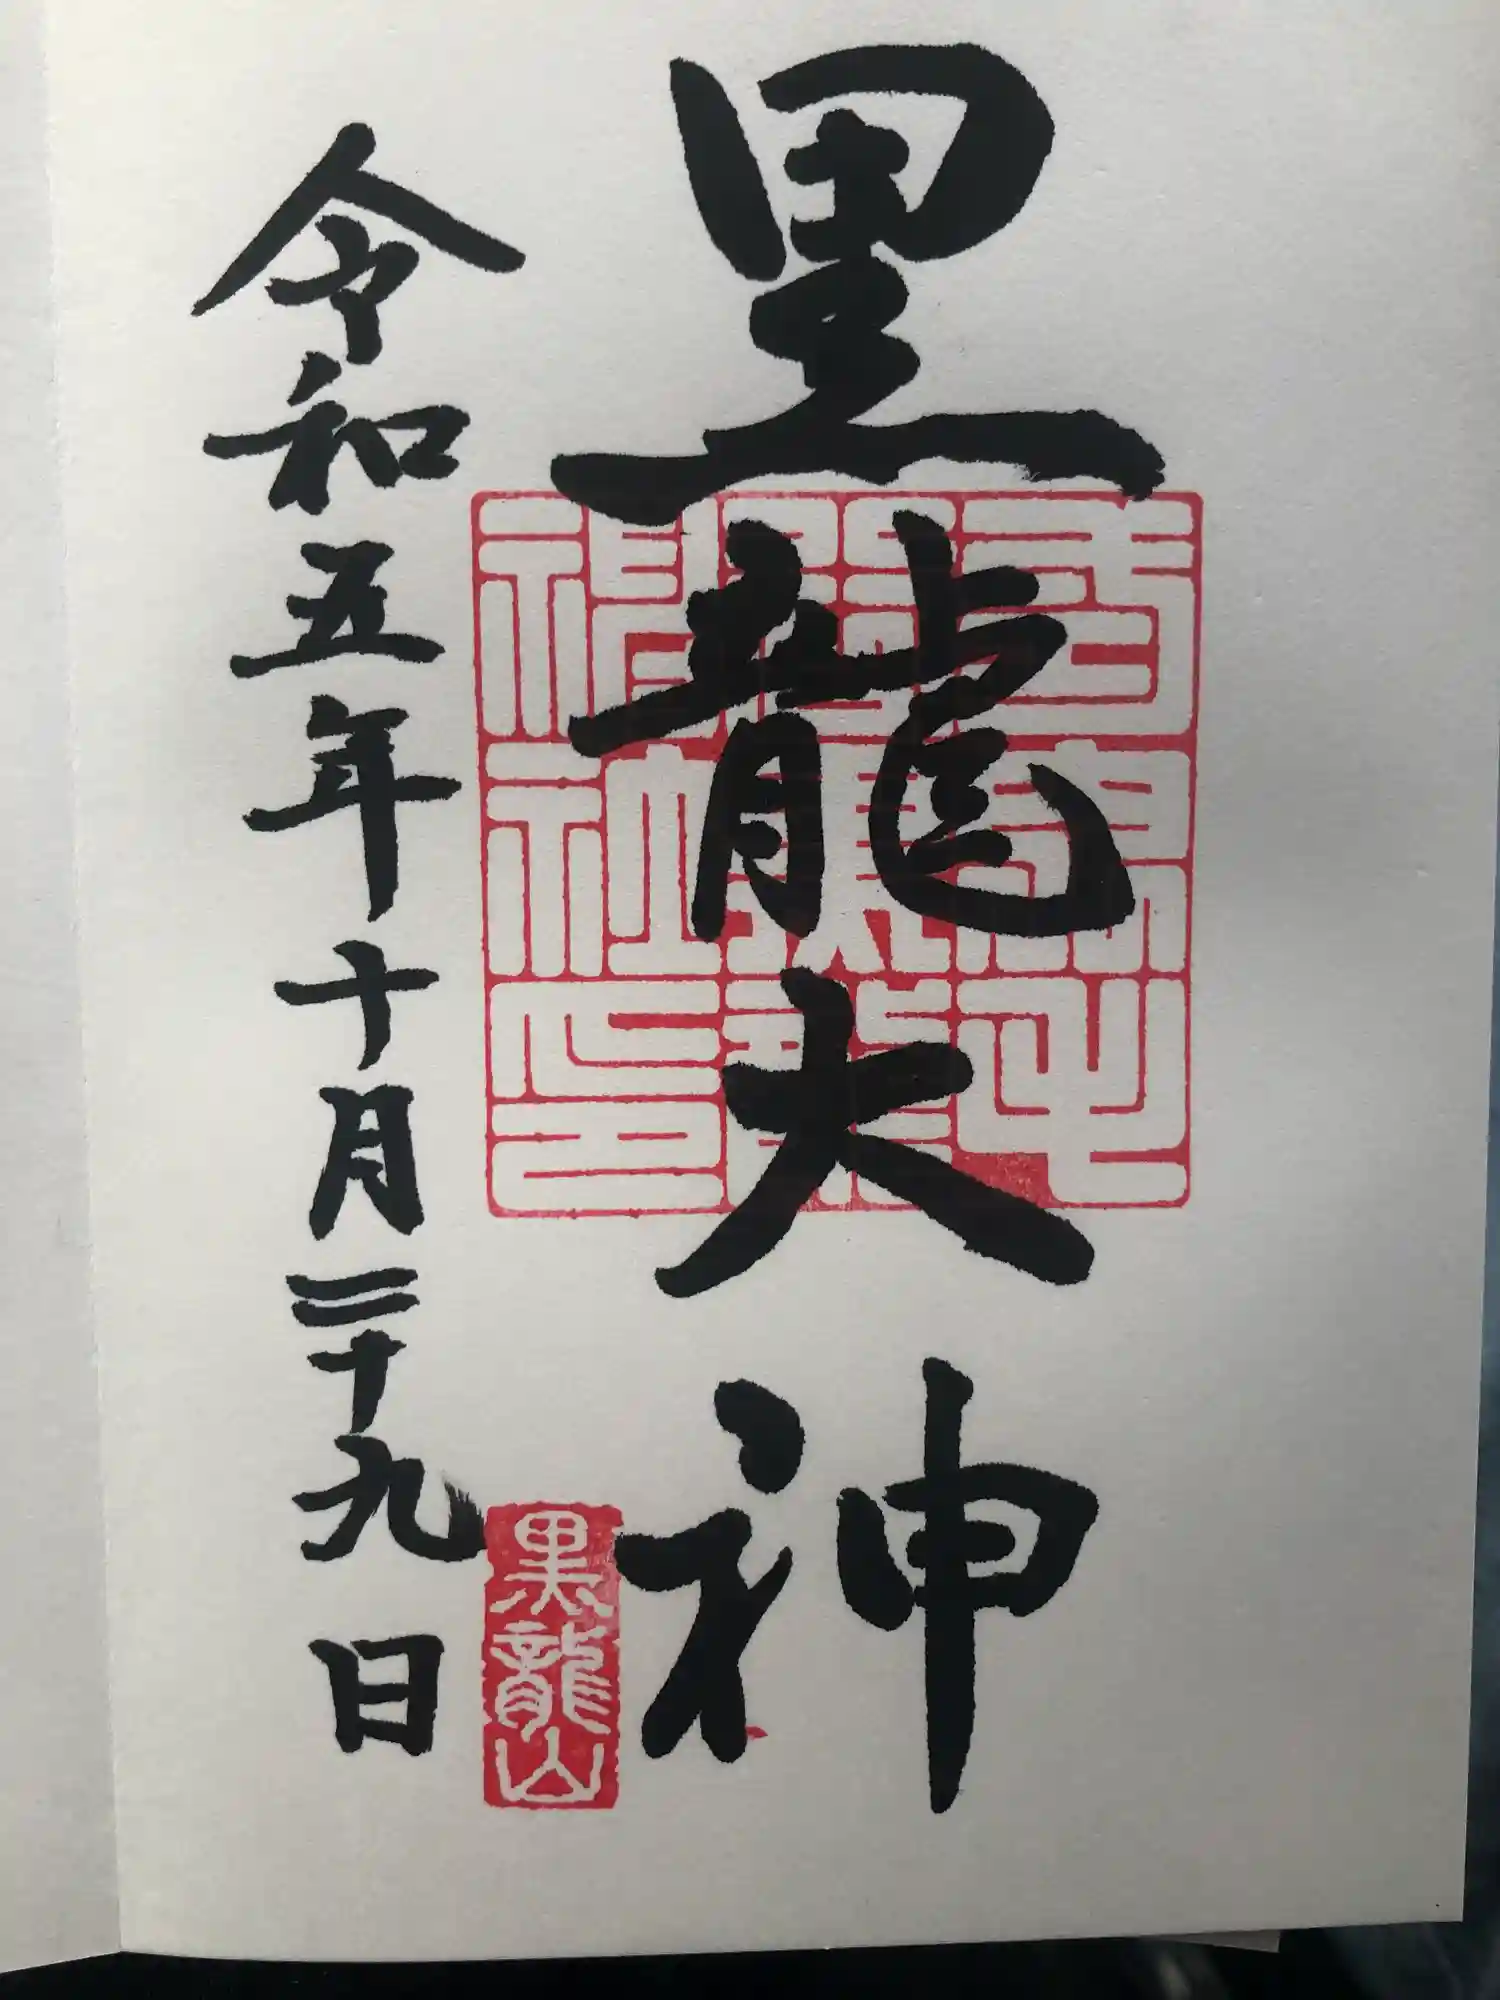 黒龍大神
令和五年十月二十九日
黒龍山